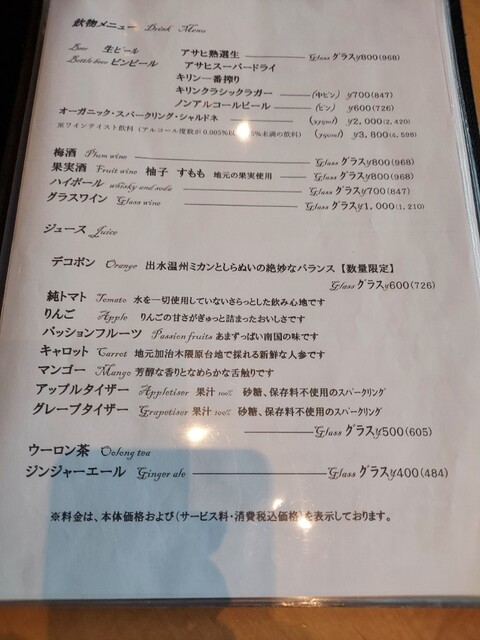 飲物メニュー Drink Menu
Beer 生ビール アサヒ熟選生 Glass グラス¥800(968)
Bottle beer ビンビール アサヒスーパードライ
キリン一番搾り
キリンクラシックラガー (中ビン) ¥700(847)
ノンアルコールビール (ビン) ¥600(726)
オーガニック・スパークリング・シャルドネ (375ml) ¥2,000(2,420)
※ワインテイスト飲料(アルコール度数が0.005%以 %未満の飲料) (750ml) ¥3,800(4,598)
梅酒 Plum wine Glass グラス¥800(968)
果実酒 Fruit wine 柚子 すもも 地元の果実使用 Glass グラス¥800(968)
ハイボール whisky and soda Glass グラス¥700(847)
グラスワイン Glass wine Glass グラス¥1,000(1,210)
ジュース Juice
デコポン Orange 出水温州ミカンとしらぬいの絶妙なバランス【数量限定】
Glass グラス¥600(726)
純トマト Tomato 水を一切使用していないさらっとした飲み心地です
りんご Apple りんごの甘さがぎゅっと詰まったおいしさです
パッションフルーツ Passion fruits あまずっぱい南国の味です
キャロット Carrot 地元加治木隈原台地で採れる新鮮な人参です
マンゴー Mango 芳醇な香りとなめらかな舌触りです
アップルタイザー Appletiser 果汁100% 砂糖、保存料不使用のスパークリング
グレープタイザー Grapetiser 果汁100% 砂糖、保存料不使用のスパークリング
Glass グラス¥500(605)
ウーロン茶 Oolong tea
ジンジャーエール Ginger ale Glass グラス¥400(484)
※料金は、本体価格および(サービス料・消費税込価格)を表示しております。